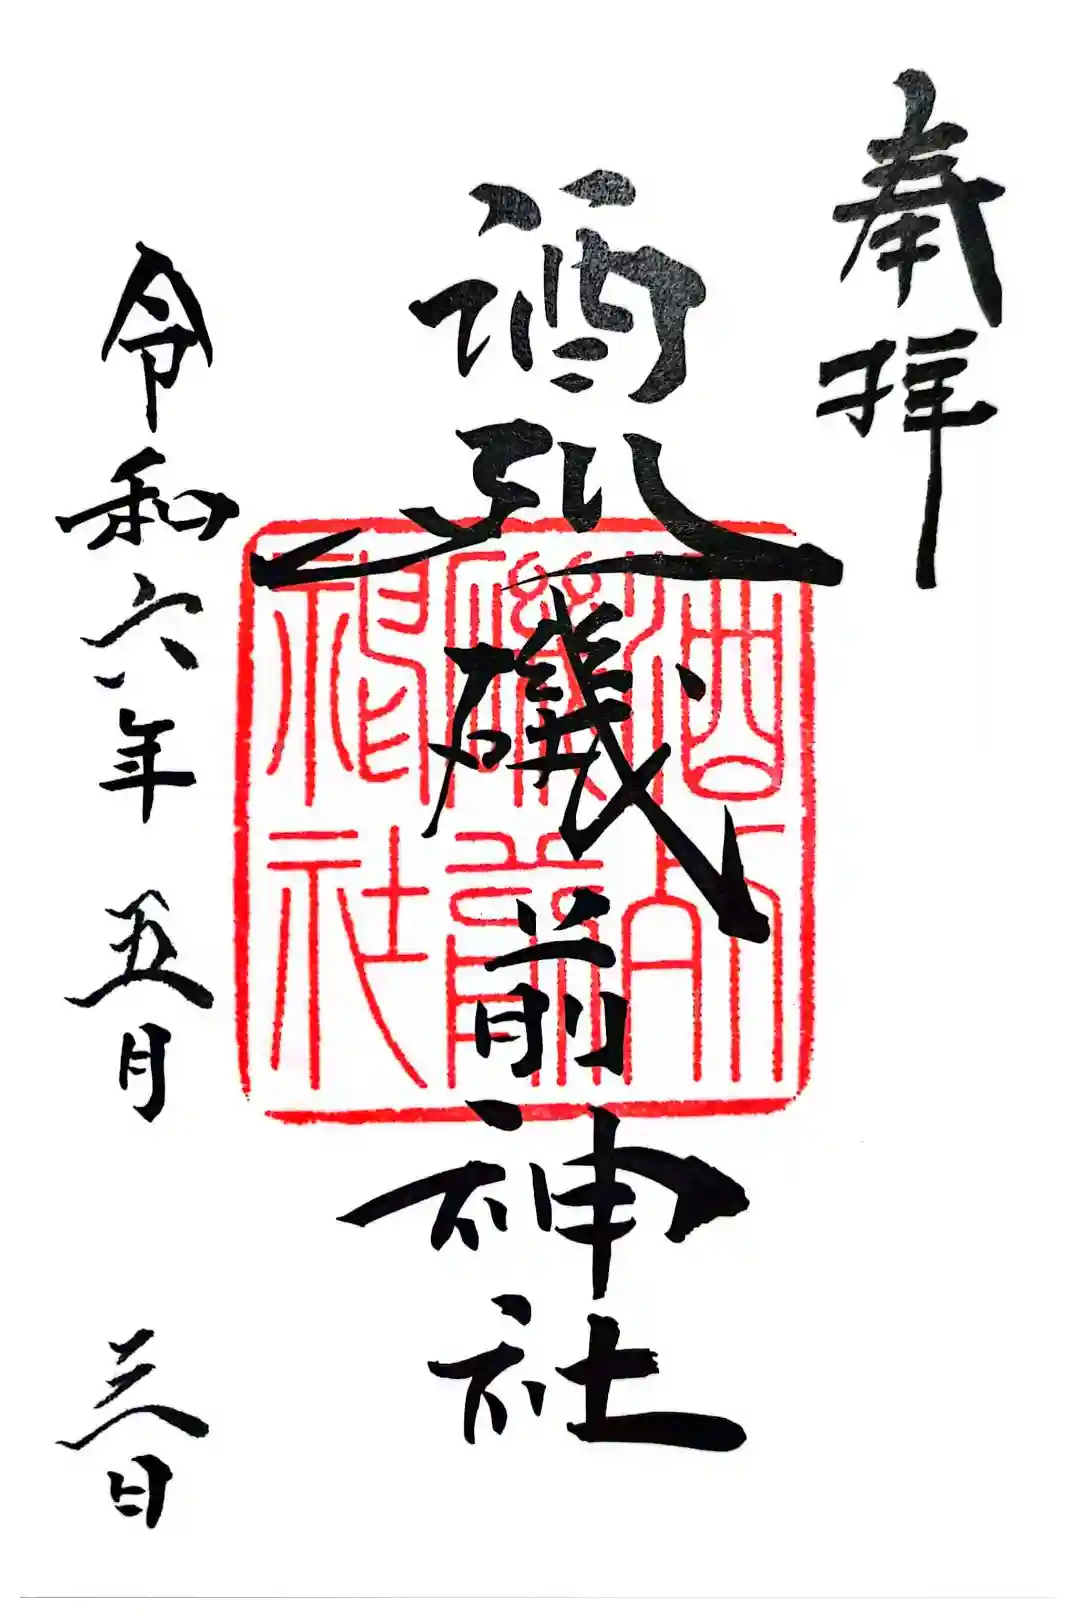 奉拝
酒列磯前神社
酒列
磯前
神社
令和六年五月三日